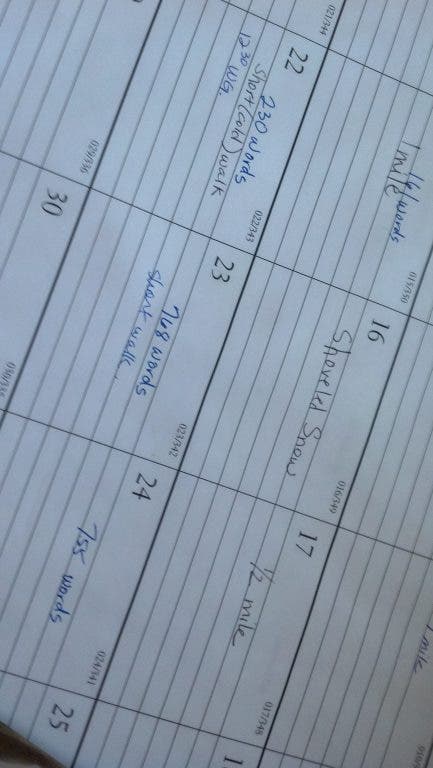 1 mile
words
1 mile
015/350
16
Shoveld Snow
016/349
17
1/2 mile
017/348
021/344
22
230 words
Short (cold) walk
12 30 WG.
022/343
23
768 words
short walk.
023/342
24
755 words
024/341
25
029/336
30
030/335